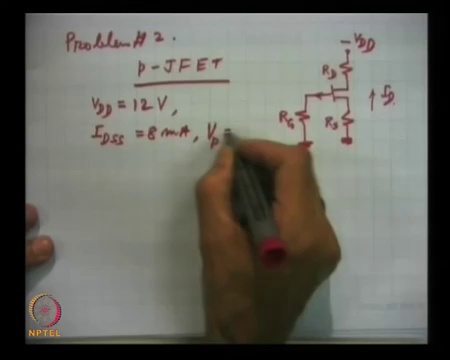 Problem # 2.
p-JFET
V_DD = 12 V,
I_DSS = 8 mA, V_p =
-V_DD
R_D
I_D
R_G
R_S
NPTEL